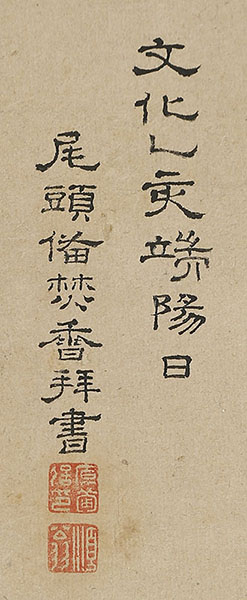 文化乙亥端陽日
尾頭俻焚香拜書